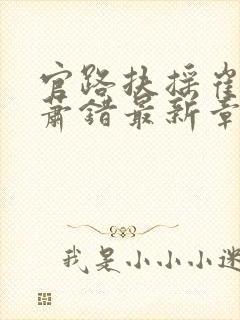 官路扶摇崔
萧错最新章
我是小小小迷